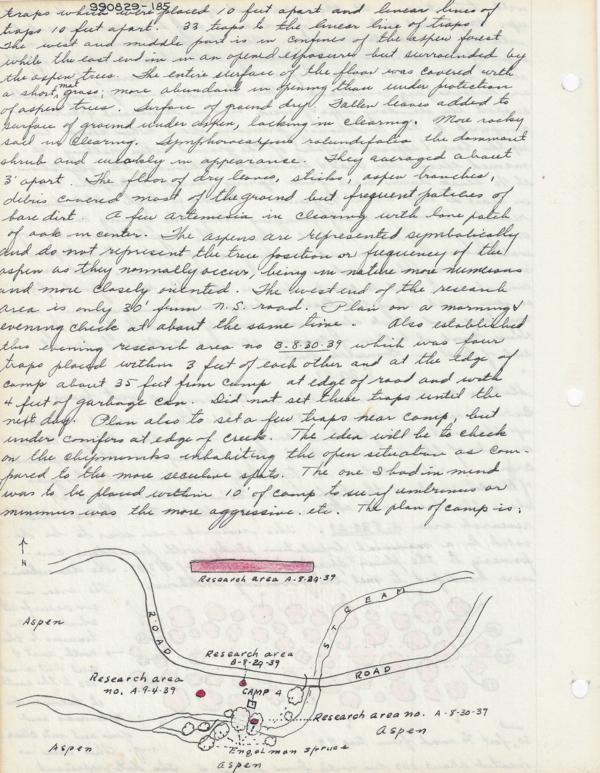 990829-185
traps which were placed 10 feet apart and linear lines of
traps 10 feet apart. 33 traps to the linear line of traps.
The west and middle part is in confines of the aspen forest
while the east end in in an opened exposure but surrounded by
the aspen trees. The entire surface of the floor was covered with
a short, mat grass; more abundant in opening than under protection
of aspen trees. Surface of ground dry. Fallen leaves added to
surface of ground under aspen, lacking in clearing. More rocky
soil in clearing. Symphorocarpus rotundifolia the dominant
shrub and in appearance. They averaged about
3' apart. The floor of dry leaves, sticks, aspen branches,
debris covered most of the ground but frequent patches of
bare dirt. A few artemesia in clearing with lone patch
of oak in center. The aspens are represented symbolically
and do not represent the true position or frequency of the
aspen as they normally occur, being in nature more numerous
and more closely oriented. The west end of the research
area is only 30' from N.S. road. Plan on a morning &
evening check at about the same time. Also established
this evening research area no B-8-30-39 which was four
traps placed within 3 feet of each other and at the edge of
camp about 35 feet from camp at edge of road and with
4 feet of garbage can. Did not set these traps until the
next day. Plan also to set a few traps near camp, but
under conifers at edge of creek. The idea will be to check
on the chipmunks inhabiting the open situation as com-
pared to the more seclusive spots. The one I had in mind
was to be placed within 10' of camp to see if umbrinus or
minimus was the more aggressive. etc. The plan of camp is:
N
Research area A-8-29-39
Aspen
ROAD
STREAM
Research area
B-8-29-39
ROAD
Research area
no. A-9-4-39
CAMP 4
Research area no. A-8-30-39
Aspen
Engelman spruce
Aspen
Aspen